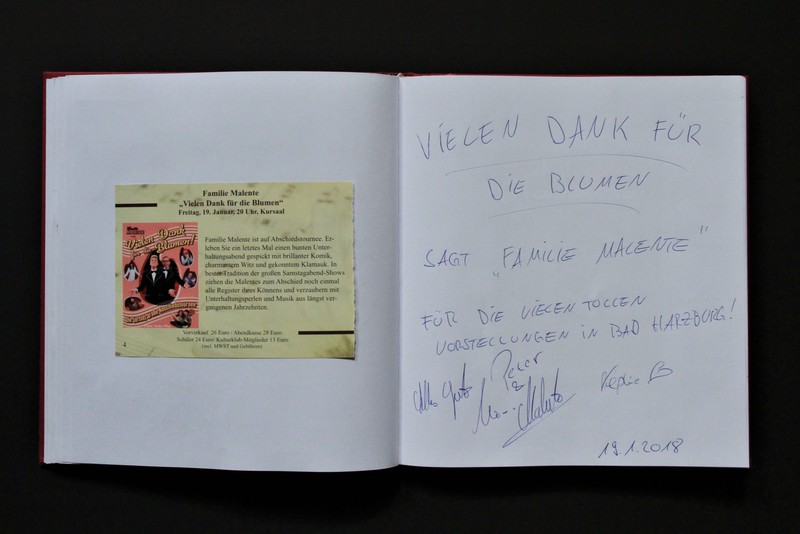 Familie Malente
„Vielen Dank für die Blumen“
Freitag, 19. Januar, 20 Uhr, Kursaal
Vielen Dank
für die Blumen!
Familie Malente ist auf Abschiedstournee. Er-
leben Sie ein letztes Mal einen bunten Unter-
haltungsabend gespickt mit brillanter Komik,
charmantem Witz und gekonntem Klamauk. In
bester Tradition der großen Samstagabend-Shows
ziehen die Malentes zum Abschied noch einmal
alle Register ihres Könnens und verzaubern mit
Unterhaltungsperlen und Musik aus längst ver-
gangenen Jahrzehnten.
Vorverkauf 26 Euro / Abendkasse 28 Euro
Schüler 24 Euro/ Kulturklub-Mitglieder 13 Euro
(incl. MWST und Gebühren)
4
VIELEN DANK FÜR
DIE BLUMEN
SAGT „FAMILIE MALENTE“
FÜR DIE VIELEN TOLLEN
VORSTELLUNGEN IN BAD HARZBURG!
Alles Gute
Peter
&
Malente
19.1.2018